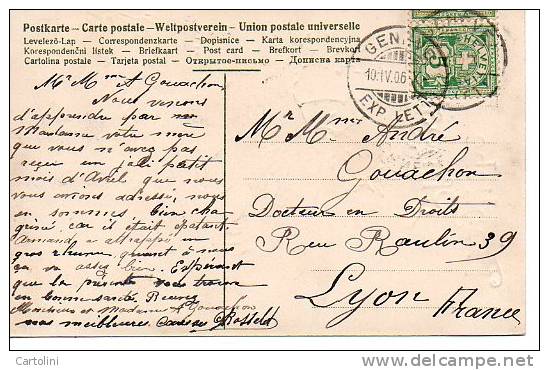 Postkarte – Carte postale – Weltpostverein – Union postale universelle
Levelező-Lap – Correspondenzkarte – Dopisnice – Karta korespondencyjna
Korespondenční listek – Briefkaart – Post card – Brefkort – Brevkort
Cartolina postale – Tarjeta postal – Открытое-письмо – Дописна карта
Mr Mme A Gouachon
Nous venons
d'apprendre par
Madame votre mère
que vous n'avez pas
reçu un joli petit
mois d'Avril que nous
vous avions adressé, nous
en sommes bien cha
griné car il était épatant
Armand a attrappé un
gros rhume, quant à nous
ça va assez bien. Espérant
que la présente vous trouve
en bonne santé. Recevez
Monsieur et Madame A Gouachon
nos meilleures
Mr Mme André
Gouachon
Docteur en Droits
Rue Raulin 39
Lyon
France
GEN
10.IV.06
EXP. LETT
5
HELVETIA
Cartolini
delcampe.net